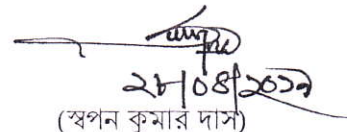 ২৮/০৪/২০১৯
(স্বপন কুমার দাস)